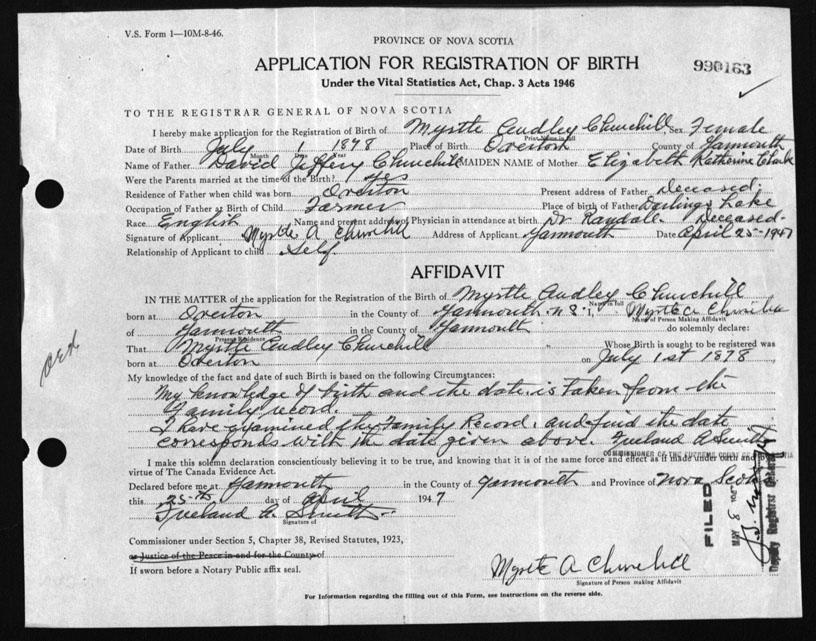 V.S. Form 1—10M-8-46.
PROVINCE OF NOVA SCOTIA
APPLICATION FOR REGISTRATION OF BIRTH
990163
Under the Vital Statistics Act, Chap. 3 Acts 1946
TO THE REGISTRAR GENERAL OF NOVA SCOTIA
I hereby make application for the Registration of Birth of Myrtle Audley Churchill, Sex Female
Print Name in full
Date of Birth July 1 1878 Place of Birth Overton County of Yarmouth
Month Day Year
Name of Father David Jeffery Churchill MAIDEN NAME of Mother Elizabeth Katherine Clark
Were the Parents married at the time of the Birth? yes
Residence of Father when child was born Overton Present address of Father Deceased.
Occupation of Father at Birth of Child Farmer Place of birth of Father Darlings Lake
Race English Name and present address of Physician in attendance at birth Dr Randall. Deceased.
Signature of Applicant Myrtle A Churchill Address of Applicant Yarmouth Date April 25-1947
Relationship of Applicant to child Self.
AFFIDAVIT
IN THE MATTER of the application for the Registration of the Birth of Myrtle Audley Churchill
Name in full
born at Overton in the County of Yarmouth N.S. I, Myrtle A Churchill
Name of Person Making Affidavit
of Yarmouth in the County of Yarmouth do solemnly declare:
Present Residence
That Myrtle Audley Churchill " Whose Birth is sought to be registered was
born at Overton on July 1st 1878
My knowledge of the fact and date of such Birth is based on the following Circumstances:
My knowledge of birth and the date is taken from the
family record.
I have examined the Family Record, and find the date
corresponds with the date given above. Freeland A Smith
COMMISSIONER OF THE SUPREME COURT OF NOVA SCOTIA
I make this solemn declaration conscientiously believing it to be true, and knowing that it is of the same force and effect as if made under oath and by
virtue of The Canada Evidence Act.
Declared before me at Yarmouth in the County of Yarmouth and Province of Nova Scotia
this 25-th day of April 1947
Freeland A. Smith
Signature of
Commissioner under Section 5, Chapter 38, Revised Statutes, 1923,
or Justice of the Peace in and for the County of
If sworn before a Notary Public affix seal.
Myrtle A Churchill
Signature of Person making Affidavit
For Information regarding the filling out of this Form, see instructions on the reverse side.
FILED
MAY 8 1947
Deputy Registrar General